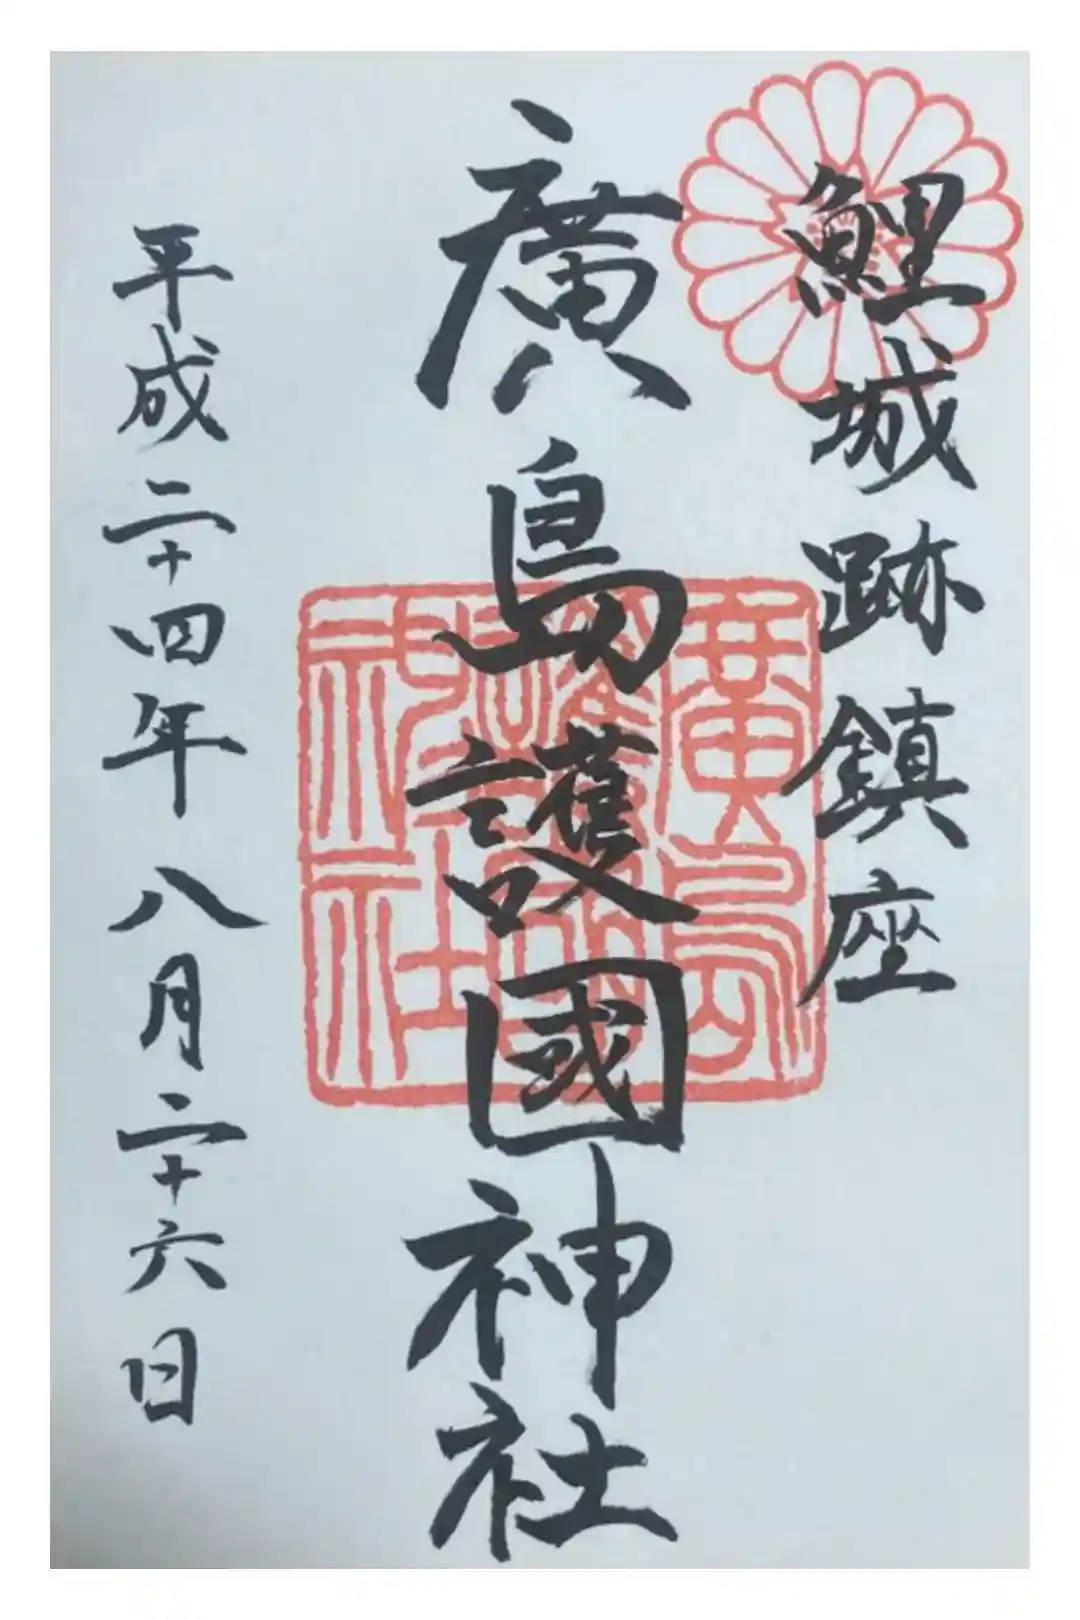 鯉城跡鎮座
廣島護國神社
廣島護國神社
平成二十四年八月二十六日